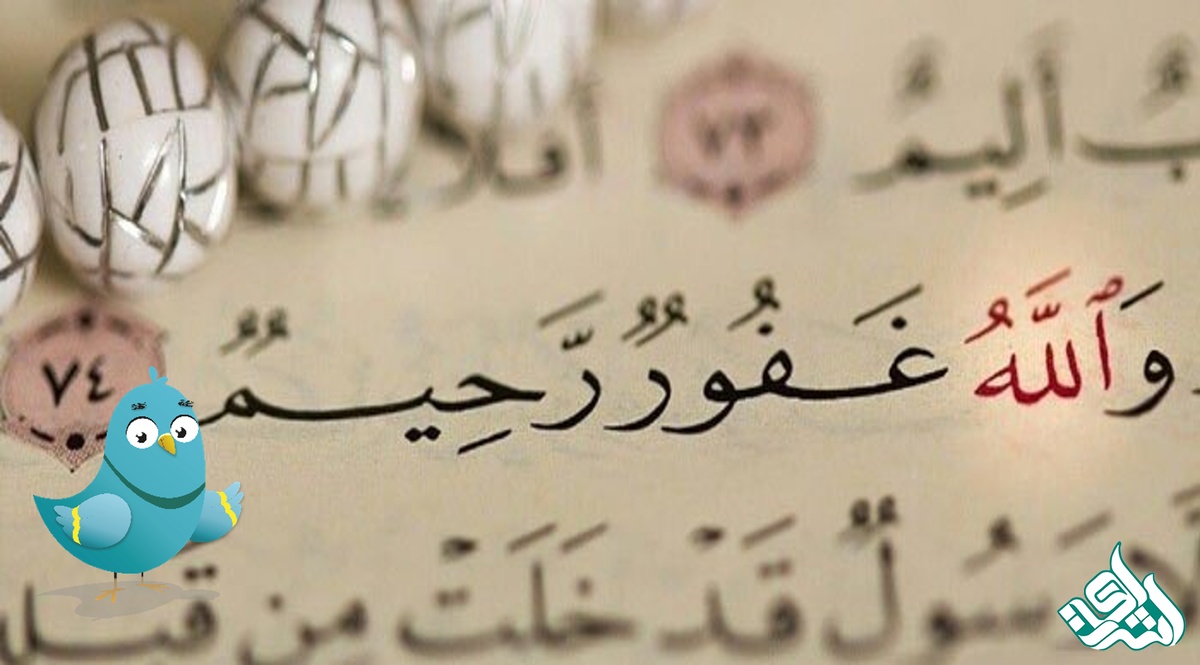 أَلِيمٌ ٧٣ أَفَلَا
وَٱللَّهُ غَفُورٌ رَّحِيمٌ ٧٤
رَسُولٌ قَدْ خَلَتْ مِن قَبْلِ